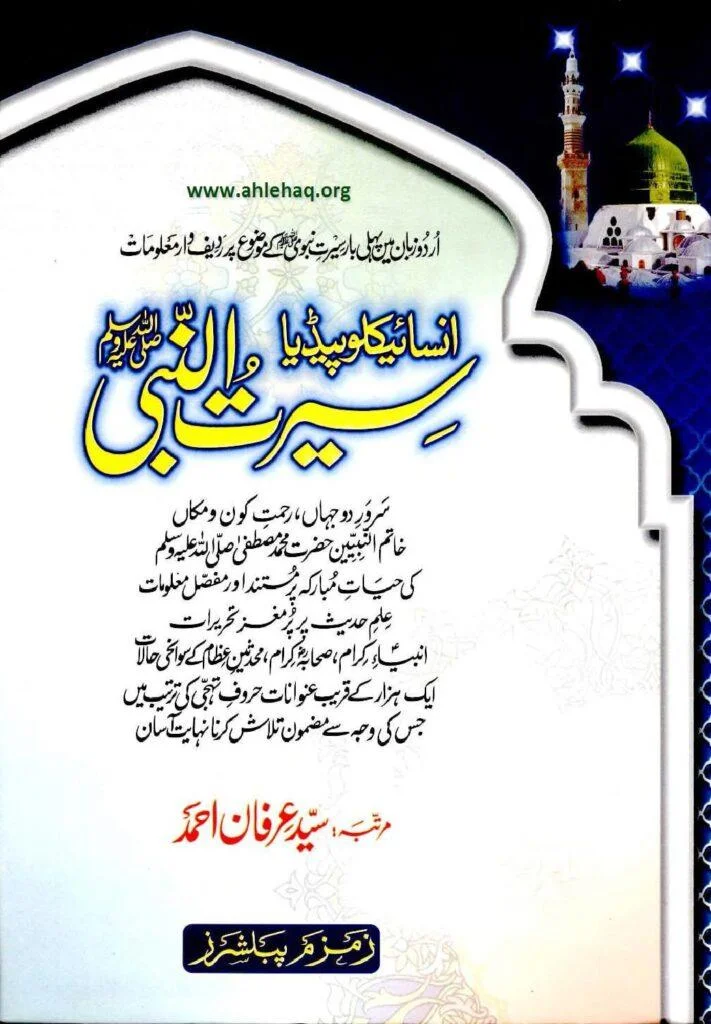 www.ahlehaq.org
اُردو زبان میں پہلی بار سیرتِ نبوی ﷺ کے موضوع پر ردیف وار معلومات
انسائیکلوپیڈیا
سیرتُ النّبی صلی اللہ علیہ وسلم
سَرورِ دو جہاں، رحمتِ کون و مکاں
خاتم النّبیّین حضرت محمد مصطفیٰ صلی اللہ علیہ وسلم
کی حیاتِ مُبارکہ پر مُستند اور مفصّل معلومات
علمِ حدیث پر پُر مغز تحریرات
انبیاءِ کرام، صحابہ کرام، محدثینِ عظام کے سوانحی حالات
ایک ہزار کے قریب عنوانات حروفِ تہجّی کی ترتیب میں
جس کی وجہ سے مضمون تلاش کرنا نہایت آسان
مرتبہ: سیّد عرفان احمد
زمزم پبلشرز